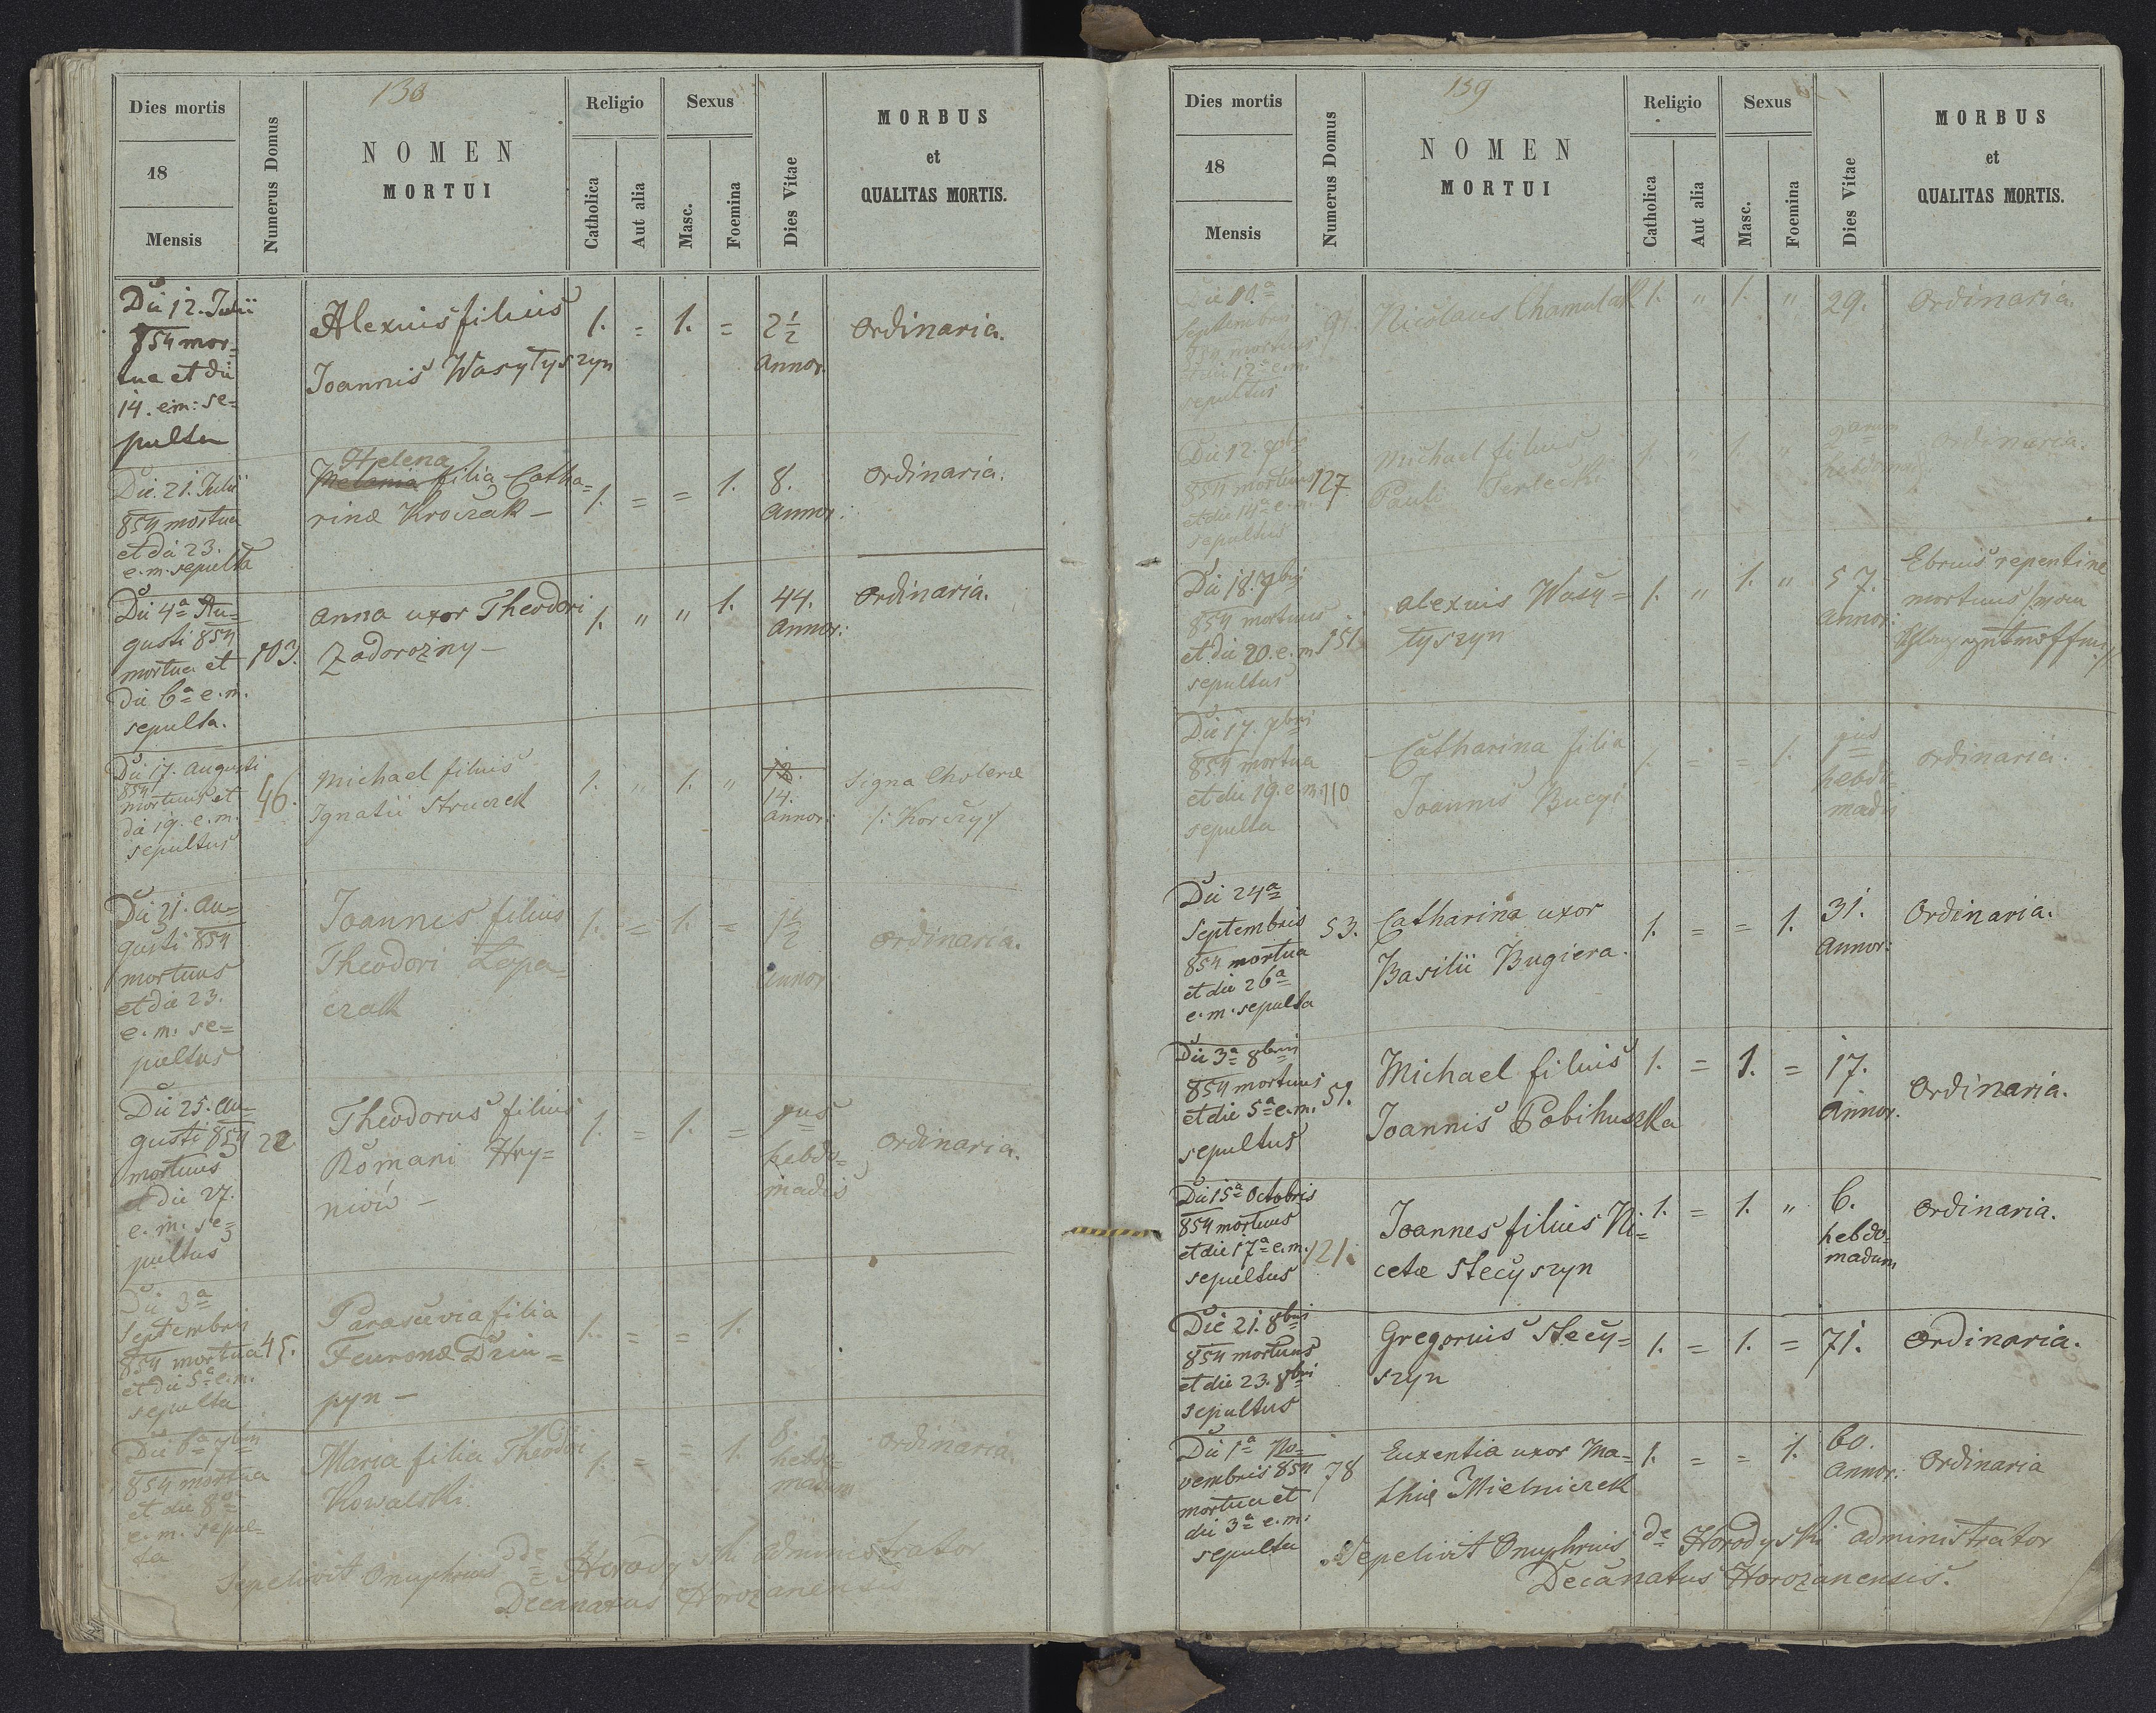 138
Dies mortis
18
Mensis
Numerus Domus
NOMEN
MORTUI
Religio
Catholica
Aut alia
Sexus
Masc.
Foemina
Dies Vitae
MORBUS
et
QUALITAS MORTIS.
Die 12. Julii
854 mor=
tua et die
14. e:m: se=
pulta
Alexius filius
Joannis Wasylyszyn
1. = 1. =
2 1/2
Annor.
Ordinaria.
Die. 21. Julii
854 mortua
et die 23.
e.m. sepulta
Helena
Melania filia Catha=
rinæ Kroczak –
1. = = 1.
8.
Annor:
Ordinaria.
Die 4a Au=
gusti 854
mortua et
die 6a e.m.
sepulta.
103.
Anna uxor Theodori
Zadorożny –
1. " " 1.
44.
Annor:
Ordinaria.
Die 17. Augusti
854
mortuus et
die 19. e.m.
sepultus
46.
Michael filius
Ignatii Struczek
1. " 1. "
14.
Annor:
Signa Choleræ
/: Korczy :/
Die 21. Au=
gusti 854
mortuus
et die 23.
e.m. se=
pultus
Joannes filius
Theodori Łopa=
czak
1. = 1. =
1 1/2
Annor
Ordinaria.
Die 25. Au=
gusti 854
mortuus
et die 27.
e.m. se=
pultus
22
Theodorus filius
Romani Hry=
niów –
1. = 1. =
hebdo=
madis
Ordinaria.
Die 3a
Septembris
854 mortua
et die 5a e.m.
sepulta
45.
Parascevia filia
Feuronæ Dziu=
pyn –
1. = = 1.
Die 6a 7bris
854 mortua
et die 8a
e.m. sepul=
ta
Maria filia Theodori
Kowalski.
1. = = 1.
8.
hebdo=
madum
Ordinaria.
Sepelivit Onuphrius de Horodyski Administrator
Decanatus Horożanensis
139
Dies mortis
18
Mensis
Numerus Domus
NOMEN
MORTUI
Religio
Catholica
Aut alia
Sexus
Masc.
Foemina
Dies Vitae
MORBUS
et
QUALITAS MORTIS.
Die 10.a
Septembris
854 mortuus
et die 12a e.m.
sepultus
91.
Nicolaus Chamulak
1. " 1. "
29.
Ordinaria.
Die 12. 7bris
854 mortuus
et die 14a e.m.
sepultus
127
Michael filius
Pauli Terlecki
1. " 1. "
hebdomad
Ordinaria.
Die 18. 7bris
854 mortuus
et die 20. e.m.
sepultus
151
Alexius Wasy=
lyszyn
1. " 1. "
57.
Annor:
Ebrius repentine
mortuus
Die 17. 7bris
854 mortua
et die 19. e.m.
sepulta
110
Catharina filia
Joannis Bucyi
1. = = 1.
hebdo=
madis
Ordinaria.
Die 24a
Septembris
854 mortua
et die 26a
e.m. sepulta
53.
Catharina uxor
Basilii Bugiera.
1. = = 1.
31.
Annor:
Ordinaria.
Die 3a 8bris
854 mortuus
et die 5a e.m.
sepultus
51.
Michael filius
Joannis Pobihuszka
1. = 1. =
17.
Annor.
Ordinaria.
Die 15a Octobris
854 mortuus
et die 17a e.m.
sepultus
121.
Joannes filius Ni=
cetæ Stecyszyn
1. = 1. "
6.
hebdo=
madum
Ordinaria.
Die 21. 8bris
854 mortuus
et die 23. 8bris
sepultus
Gregorius Stecy=
szyn
1. = 1. =
71.
Ordinaria.
Die 1a No=
vembris 854
mortua et
die 3a e.m.
sepulta
78
Euxentia uxor Ma=
thiæ Mielniczek
1. = = 1.
60.
Annor:
Ordinaria
Sepelivit Onuphrius de Horodyski Administrator
Decanatus Horożanensis.